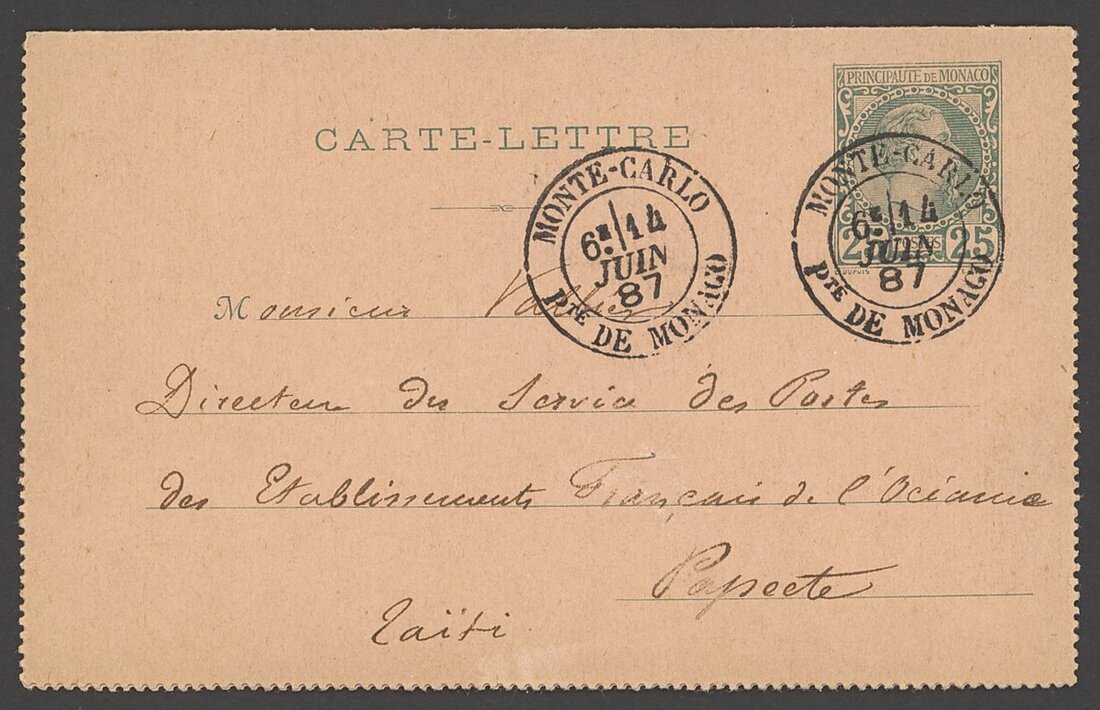 PRINCIPAUTE DE MONACO
CARTE-LETTRE
MONTE-CARLO
6E 14
JUIN
87
PTE DE MONACO
MONTE-CARLO
6E 14
JUIN
87
PTE DE MONACO
25 25
E. DUPUIS
Monsieur
Directeur du Service des Postes
des Etablissements Français de l'Océanie
Papeete
Taïti